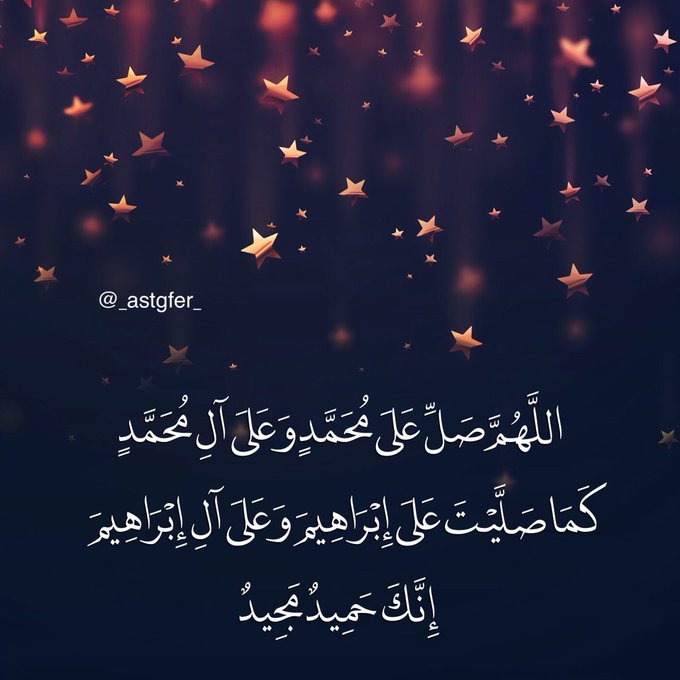 @_astgfer_
اللَّهُمَّ صَلِّ عَلَى مُحَمَّدٍ وَعَلَى آلِ مُحَمَّدٍ
كَمَا صَلَّيْتَ عَلَى إِبْرَاهِيمَ وَعَلَى آلِ إِبْرَاهِيمَ
إِنَّكَ حَمِيدٌ مَجِيدٌ